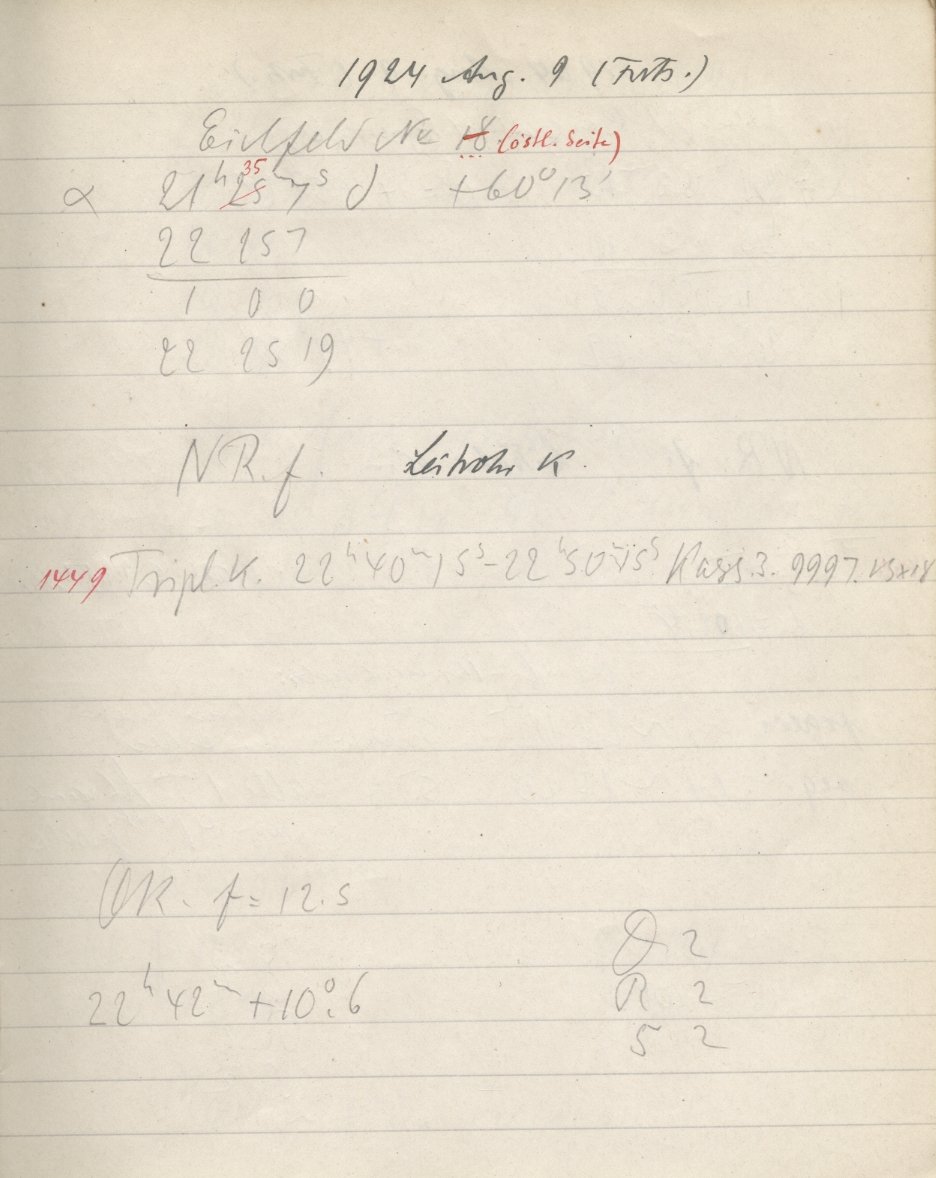 1924 Aug. 9 (Forts.)
Eichfeld No 18 (östl. Seite)
α 21h 25 35m 7s δ +60° 13'
22 25 7
1 0 0
22 25 19
N R. f. Leitrohr K.
1449 Tripl. K. 22h 40m 15s - 22h 50m 15s Kass. 3. 9997. 13x18
OK. f = 12.5
22h 42m + 10°.6
D 2
R 2
S 2